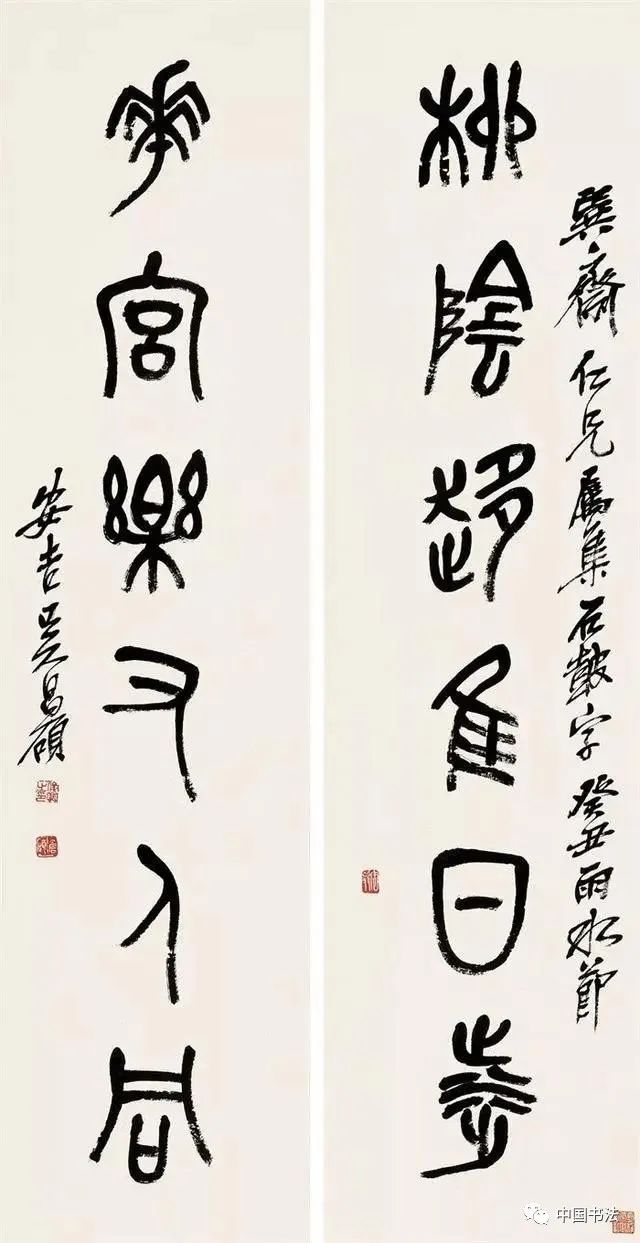 巽齋仁兄屬集石鼓字癸丑雨水節
柳陰趍隹日涉
華宮樂又人同
安吉吳昌碩
中国书法